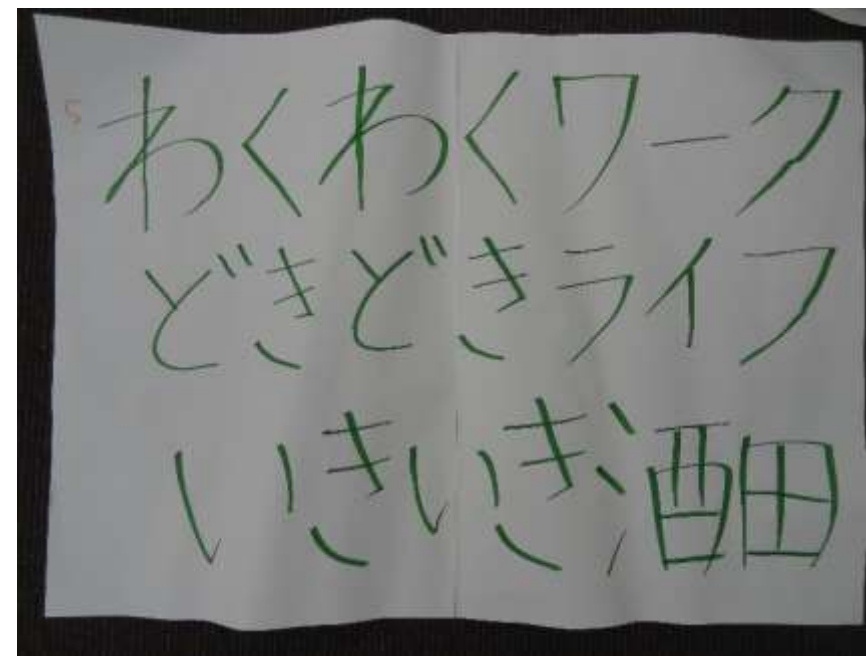 わくわくワーク
どきどきライフ
いきいき酒田